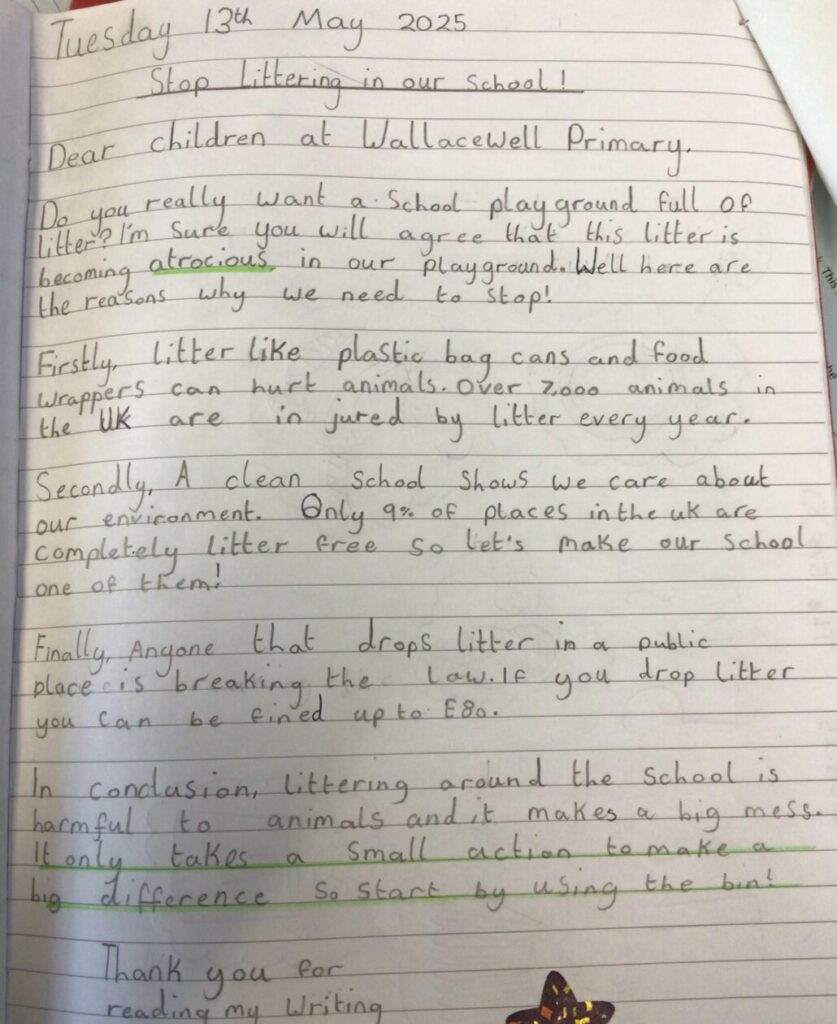 Tuesday 13th May 2025
Stop Littering in our School!
Dear children at Wallacewell Primary.
Do you really want a School playground full of
litter? I'm Sure you will agree that this litter is
becoming atrocious in our playground. Well here are
the reasons why we need to Stop!
Firstly, litter like plastic bag cans and food
wrappers can hurt animals. Over 7,000 animals in
the UK are in jured by litter every year.
Secondly, A clean School Shows we care about
our environment. Only 9% of places in the uk are
completely litter free so let's make our School
one of them!
Finally, Anyone that drops litter in a public
place is breaking the Law. If you drop litter
you can be fined up to £80.
In conclusion, littering around the School is
harmful to animals and it makes a big mess.
It only takes a Small action to make a
big difference So Start by using the bin!
Thank you for
reading my Writing
This